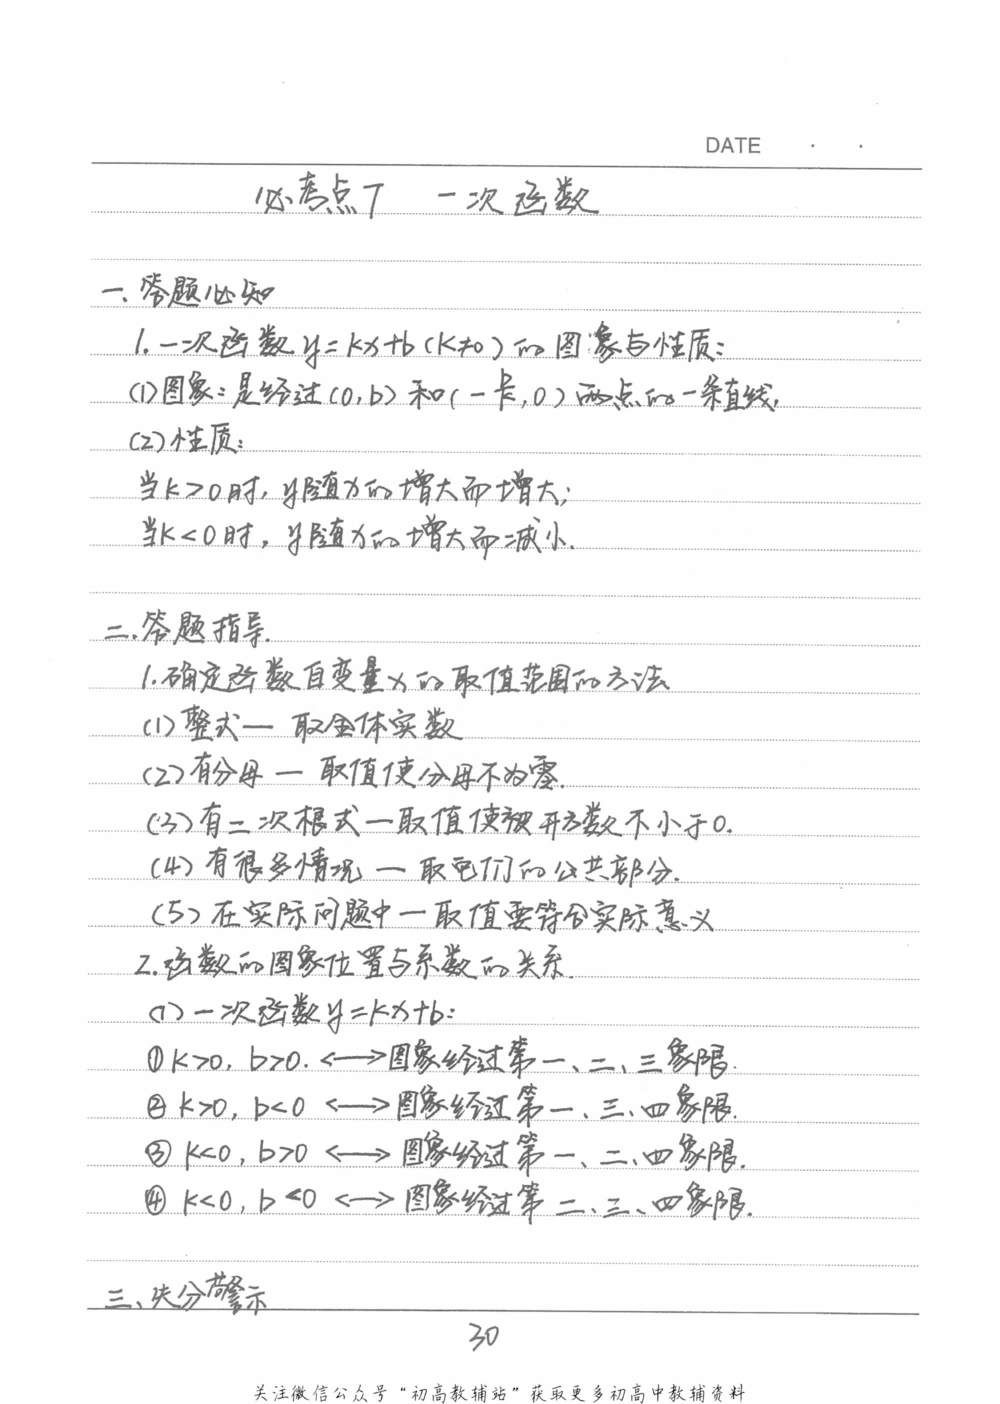 DATE · ·
必考点7 一次函数
一、答题必知
1. 一次函数y=kx+b(k≠0)的图象与性质:
(1)图象:是经过(0,b)和(-b/k,0)两点的一条直线,
(2)性质:
当k>0时,y随x的增大而增大;
当k<0时,y随x的增大而减小.
二.答题指导.
1.确定函数自变量x的取值范围的方法
(1)整式— 取全体实数
(2)有分母 — 取值使分母不为零.
(3)有二次根式—取值使被开方数不小于0.
(4)有很多情况 — 取它们的公共部分.
(5)在实际问题中—取值要符合实际意义
2.函数的图象位置与系数的关系.
(1)一次函数y=kx+b:
①k>0, b>0. <—>图象经过第一、二、三象限.
②k>0, b<0 <—>图象经过第一、三、四象限.
③ k<0, b>0 <—>图象经过第一、二、四象限.
④ k<0, b<0 <—>图象经过第二、三、四象限.
三、失分警示
30
关注微信公众号“初高教辅站”获取更多初高中教辅资料